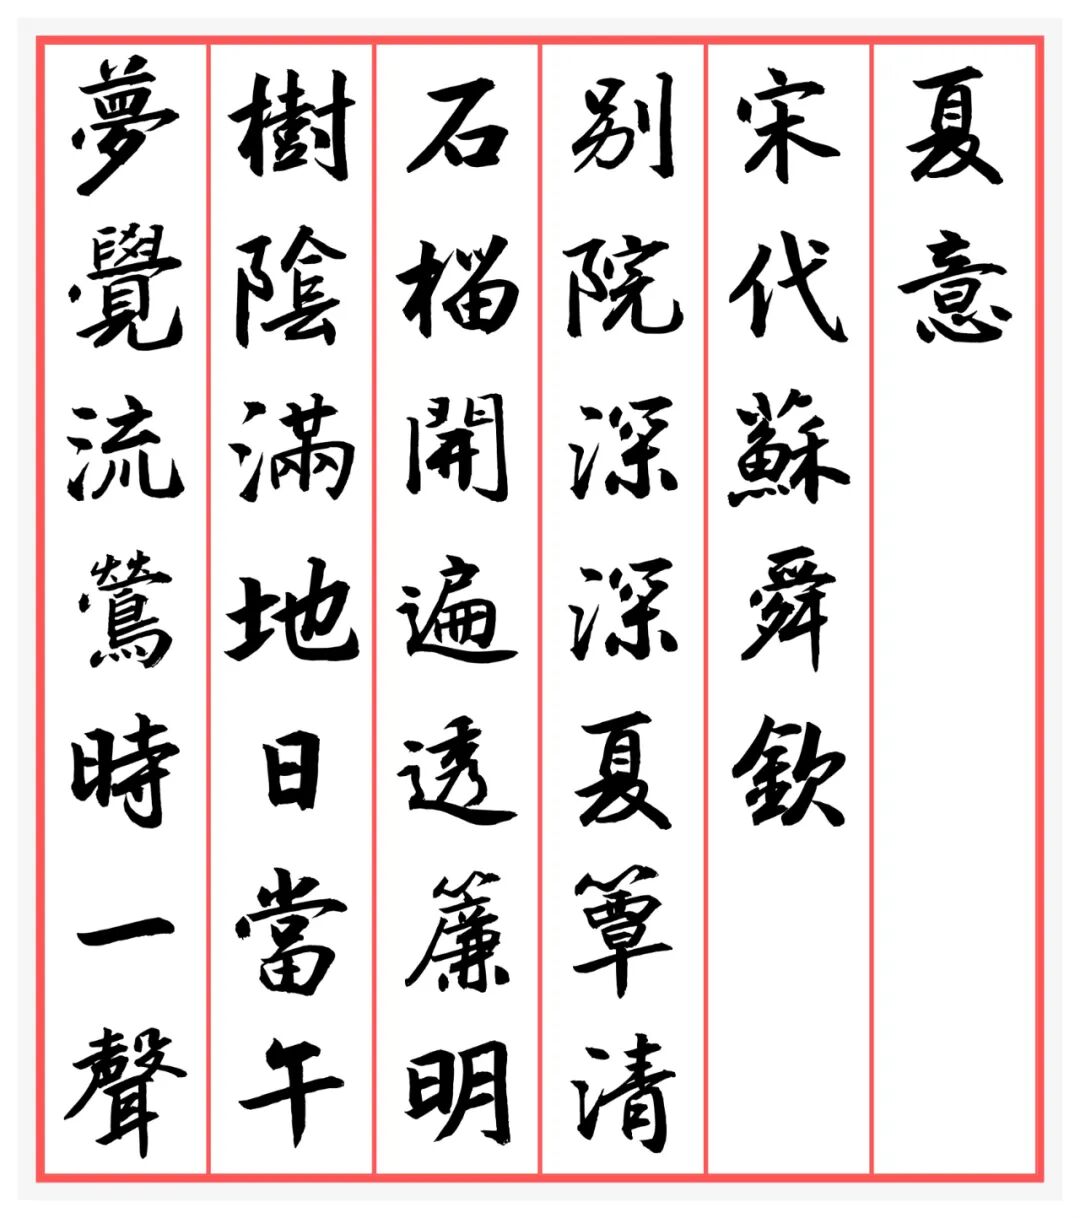 夏意
宋代蘇舜欽
别院深深夏簟清
石榴開遍透簾明
樹陰滿地日當午
夢覺流鶯時一聲